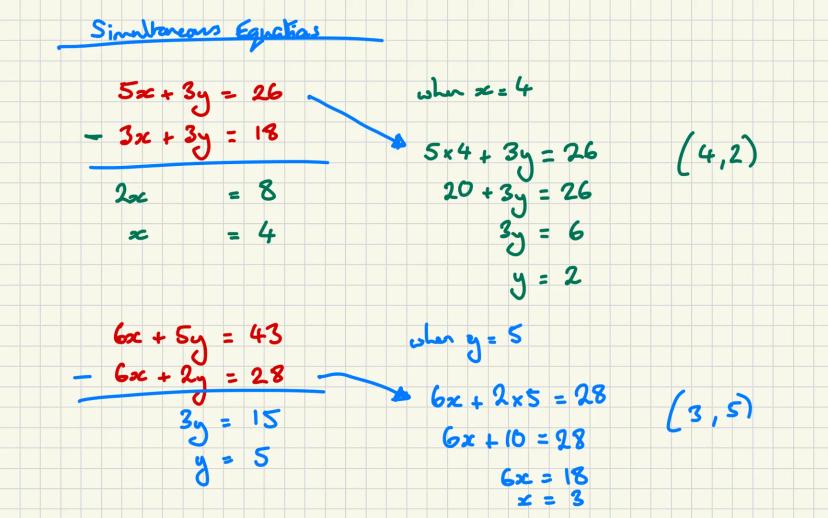 Simultaneous Equations
5x + 3y = 26
- 3x + 3y = 18
2x = 8
x = 4
when x = 4
5×4 + 3y = 26
20 + 3y = 26
3y = 6
y = 2
(4,2)
6x + 5y = 43
- 6x + 2y = 28
3y = 15
y = 5
when y = 5
6x + 2×5 = 28
6x + 10 = 28
6x = 18
x = 3
(3,5)